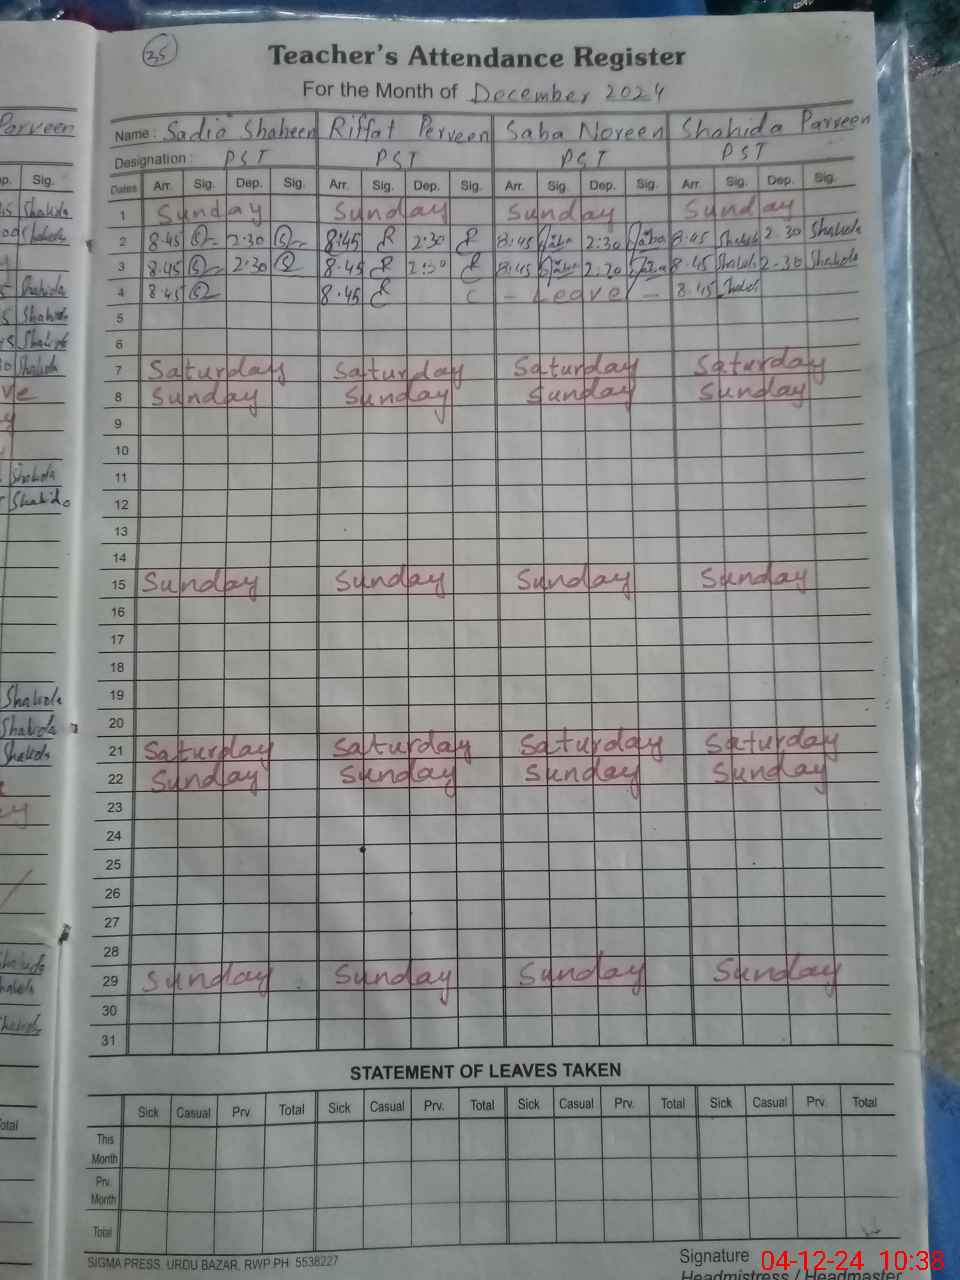 35
Teacher's Attendance Register
For the Month of December 2024
Parveen
Name : Sadia Shaheen Riffat Perveen Saba Noreen Shahida Parveen
Designation : PST PST PST PST
Sig.
Dates Arr. Sig. Dep. Sig. Arr. Sig. Dep. Sig. Arr. Sig. Dep. Sig. Arr. Sig. Dep. Sig.
Shahida
1 Sunday Sunday Sunday Sunday
2 8.45 2.30 8:45 R 2:30 R 8:45 Saba 2:30 Saba 8.45 Shahida 2.30 Shahida
3 8.45 2.30 8.45 R 2:30 R 8:45 Saba 2:30 Saba 8.45 Shahida 2-30 Shahida
4 8.45 8.45 R - Leave - 8.45
Shahida
5
Shahida
6
Shahida
7 Saturday Saturday Saturday Saturday
Shahida
8 Sunday Sunday Sunday Sunday
9
10
11
Shahida
12
Shahida
13
14
15 Sunday Sunday Sunday Sunday
16
17
18
19
Shahida
20
Shahida
21 Saturday Saturday Saturday Saturday
Shahida
22 Sunday Sunday Sunday Sunday
23
24
25
26
27
28
29 Sunday Sunday Sunday Sunday
30
31
STATEMENT OF LEAVES TAKEN
Sick Casual Prv. Total Sick Casual Prv. Total Sick Casual Prv. Total Sick Casual Prv. Total
This
Month
Prv.
Month
Total
SIGMA PRESS, URDU BAZAR, RWP PH: 5538227
Signature
Headmistress / Headmaster
04-12-24 10:38